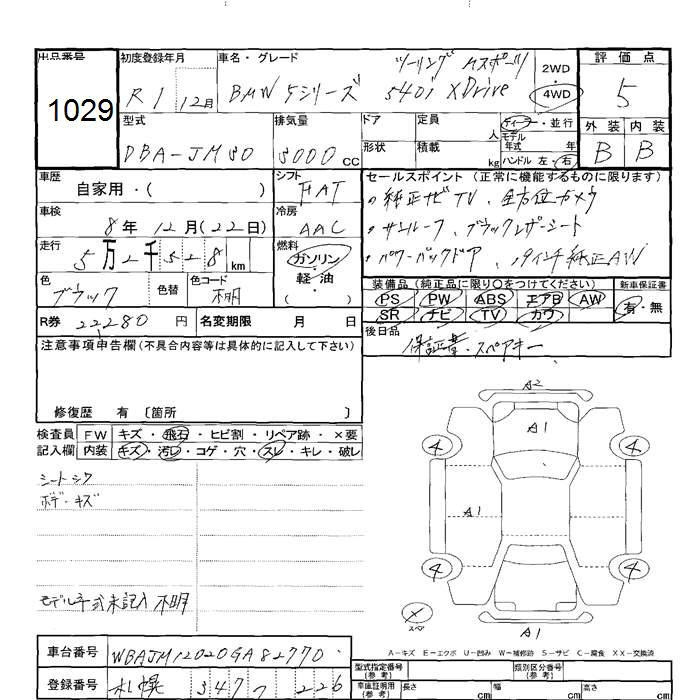 出品番号 1029
初度登録年月 R1 12月
車名・グレード ツーリング Mスポーツ
BMW 5シリーズ 540i XDrive
2WD
4WD
評価点 5
型式 DBA-JM30
排気量 3000 CC
ドア 定員 人
形状 積載 kg
ディーラー・並行
モデル年式 年
ハンドル 左・右
外装 内装
B B
車歴 自家用・( )
シフト FAT
セールスポイント (正常に機能するものに限ります)
・純正ナビTV、全方位カメラ
・サンルーフ、ブラックレザーシート
・パワーバックドア、19インチ純正AW
車検 8年 12月(22日)
冷房 AAC
走行 5万2千528 km
燃料 ガソリン・軽・油 ( )
色 ブラック 色替 色コード 不明
装備品 (純正品に限り○をつけてください)
PS PW ABS エアB AW
SR ナビ TV カワ
新車保証書
有・無
R券 22280 円 名変期限 月 日
後日品 保証書・スペアキー
注意事項申告欄 (不具合内容等は具体的に記入して下さい)
修復歴 有 〔箇所 〕
検査員記入欄
FW キズ・飛石・ヒビ割・リペア跡・×要
内装 キズ・汚レ・コゲ・穴・スレ・キレ・破レ
シートシワ
ボデーキズ
モデル年式未記入 不明
A2
A1
4 4
A1
4 4
A1
× スペア
A-キズ E-エクボ U-凹み W-補修跡 S-サビ C-腐食 XX-交換済
車台番号 WBAJM12020GA82770
登録番号 札幌 347 226
型式指定番号 (参考) 類別区分番号 (参考)
車庫証明用 (参考) 長さ cm 幅 cm 高さ cm